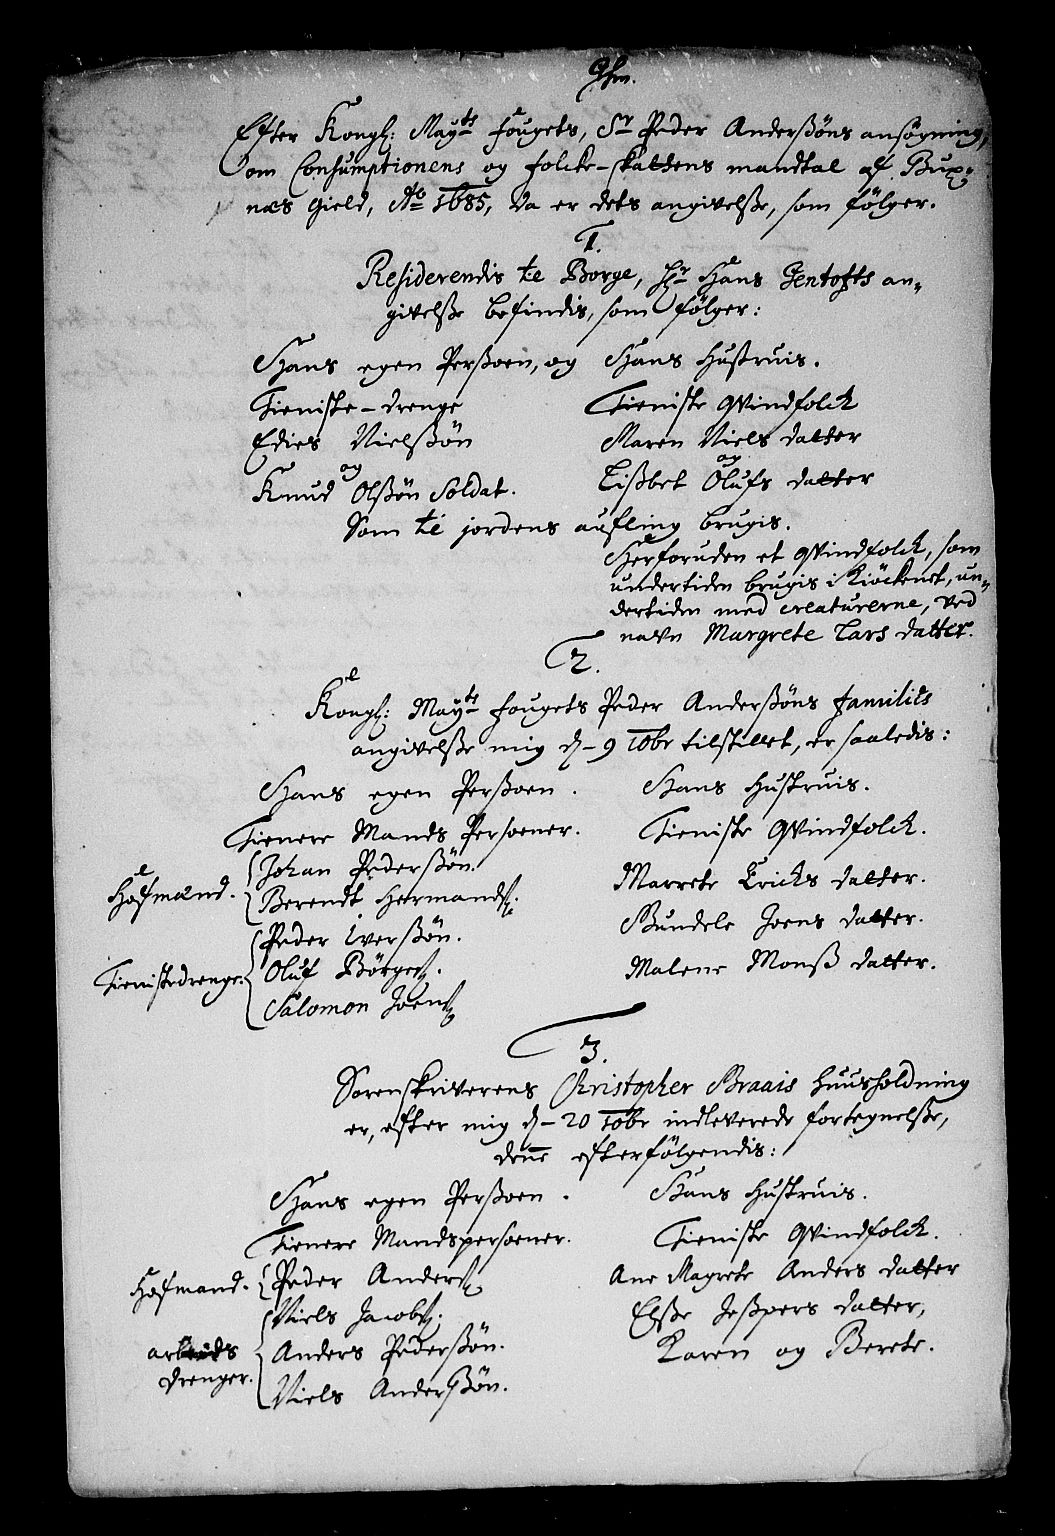 Efter Kongl: Mayts fougets, Sr Peder Anderßøns ansøgning,
om Consumptionens og folcke-skattens mandtal af Bux-
næs gield, Ao 1685, da er dets angivelße, som følger.
1.
Residerendis til Borge, Hr Hans Gentofts an-
givelße befindis, som følger:
Hans egen Perßoen, og Hans Hustruis.
Tieniste-drenge Tieniste Qvindfolck
Edies Nielßøn Maren Niels datter
og og
Knud Olßøn Soldat. Lißbet Olufs datter
Som til jordens aufling brugis.
Herforuden et Qvindfolck, som
undertiden brugis i Kiøckenet, un-
dertiden med creaturerne, ved
navn Margrete Lars datter.
2.
Kongl: Mayts fougets Peder Anderßøns families
angivelße mig d- 9 10br tilstillet, er saaledis:
Hans egen Perßoen. Hans Hustruis.
Tienere Mands Persoener. Tieniste Qvindfolck.
Hofmænd. Johan Pederßøn. Marrete Erichs datter.
Berendt Hermands. Gundele Joens datter.
Peder Iverßøn.
Tienistedrenge. Oluf Børges. Malene Monß datter.
Salomon Joens
3.
Sorenskriverens Christopher Braais huusholdning
er, efter mig d- 20 10br indleverede fortegnelße,
denne efterfølgendis:
Hans egen Perßoen. Hans Hustruis.
Tienere Mandspersoener. Tieniste Qvindfolck.
Hofmand. Peder Anders Ane Magrete Anders datter
Niels Jacobs. Elße Jeßpers datter,
arbeids Anders Pederßøn. Karen og Berete.
drenger. Niels Anderßøn.